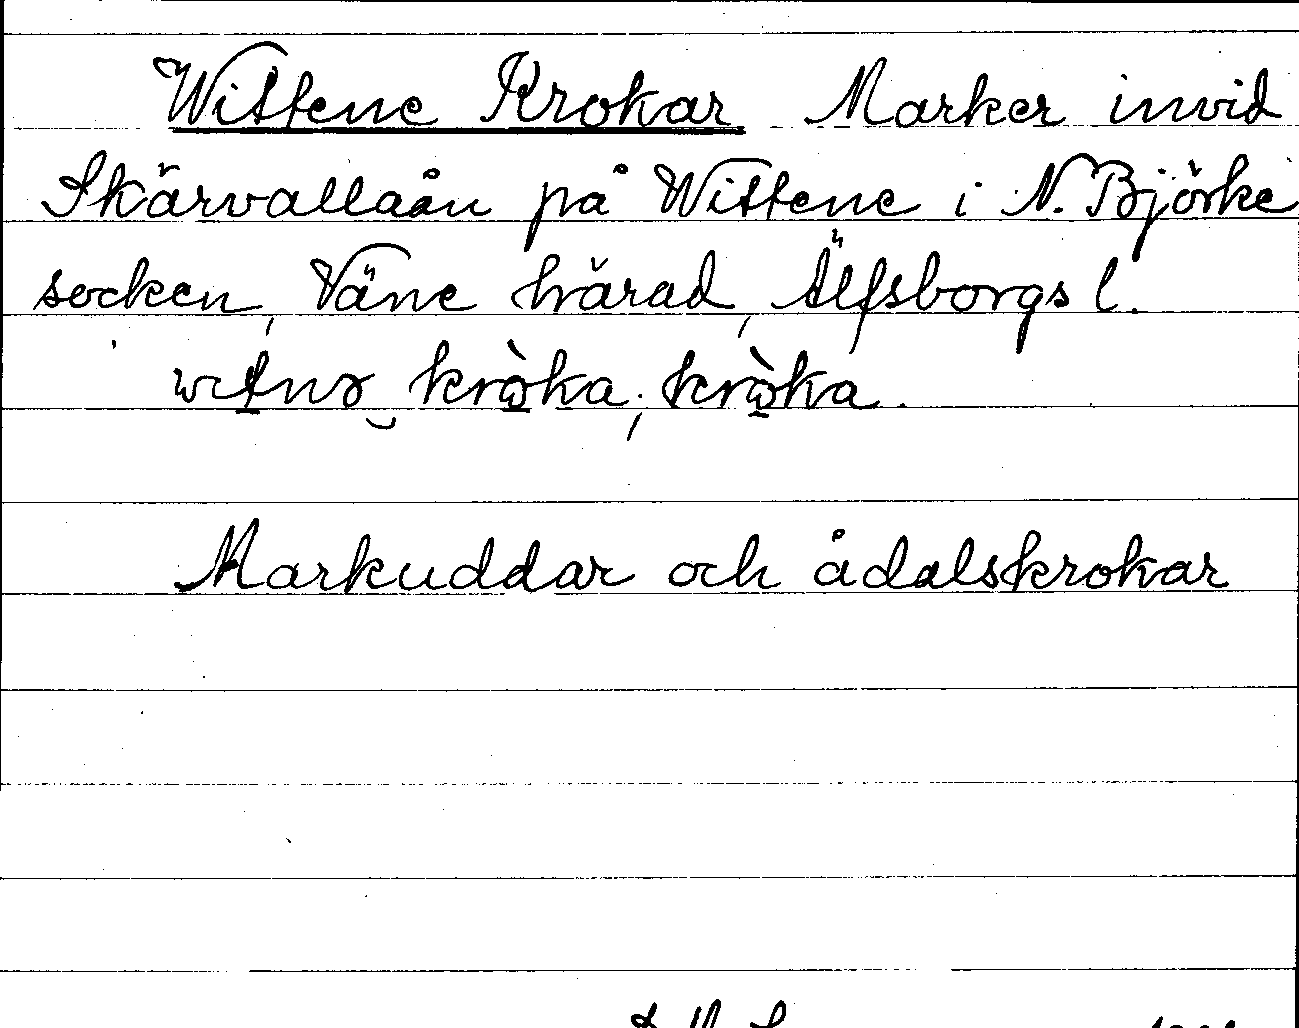 Wittene Krokar Marker invid
Skärvallaån på Wittene i N. Björke
socken, Väne härad, Älfsborgs l.
kròka; kròka.
Markuddar och ådalskrokar